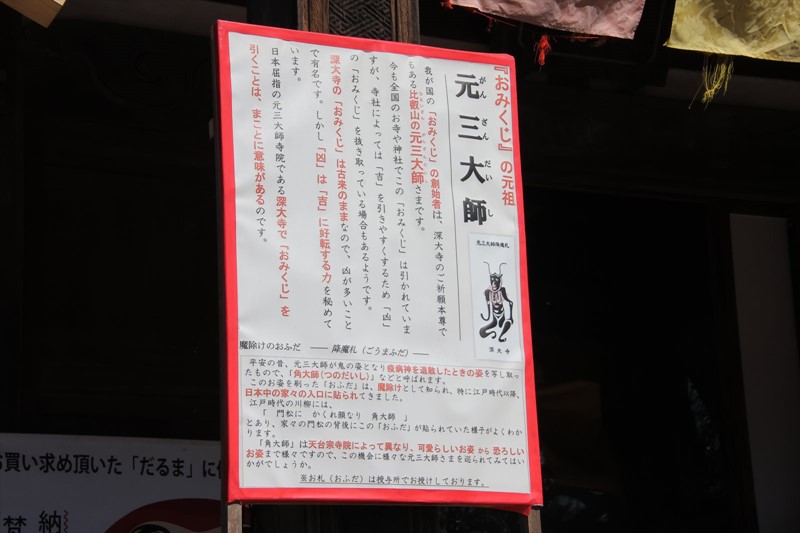 『おみくじ』の元祖
がん ざん だい し
元三大師
我が国の「おみくじ」の創始者は、深大寺のご祈願本尊で
もある比叡山の元三大師さまです。
今も全国のお寺や神社でこの「おみくじ」は引かれていま
すが、寺社によっては「吉」を引きやすくするため「凶」
の「おみくじ」を抜き取っている場合もあるようです。
深大寺の「おみくじ」は古来のままなので、凶が多いこと
で有名です。しかし「凶」は「吉」に好転する力を秘めて
います。
日本屈指の元三大師寺院である深大寺で「おみくじ」を
引くことは、まことに意味があるのです。
元三大師降魔札
深大寺
魔除けのおふだ ―― 降魔札(ごうまふだ) ――
平安の昔、元三大師が鬼の姿となり疫病神を退散したときの姿を写し取っ
たもので、「角大師(つのだいし)」などと呼ばれます。
このお姿を刷った「おふだ」は、魔除けとして知られ、特に江戸時代以降、
日本中の家々の入口に貼られてきました。
江戸時代の川柳には、
「 門松に かくれ顔なり 角大師 」
とあり、家々の門松の背後にこの「おふだ」が貼られていた様子がよくわか
ります。
「角大師」は天台宗寺院によって異なり、可愛らしいお姿 から 恐ろしい
お姿まで様々ですので、この機会に様々な元三大師さまを巡られてみてはい
かがでしょうか。
※お札(おふだ)は授与所でお授けしております。
お買い求め頂いた「だるま」に
納
梵